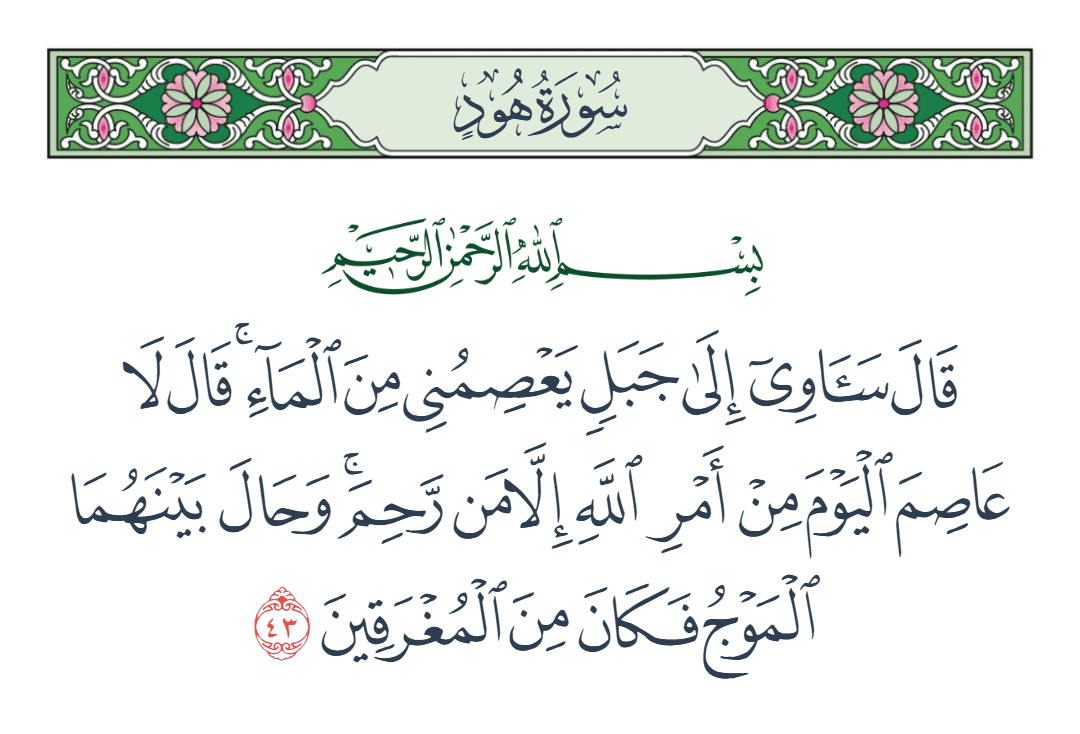 سُورَةُ هُودٍ
بِسْمِ ٱللَّهِ ٱلرَّحْمَٰنِ ٱلرَّحِيمِ
قَالَ سَـَٔاوِىٓ إِلَىٰ جَبَلِ يَعْصِمُنِى مِنَ ٱلْمَآءِ ۚ قَالَ لَا
عَاصِمَ ٱلْيَوْمَ مِنْ أَمْرِ ٱللَّهِ إِلَّا مَن رَّحِمَ ۚ وَحَالَ بَيْنَهُمَا
ٱلْمَوْجُ فَكَانَ مِنَ ٱلْمُغْرَقِينَ ٤٣